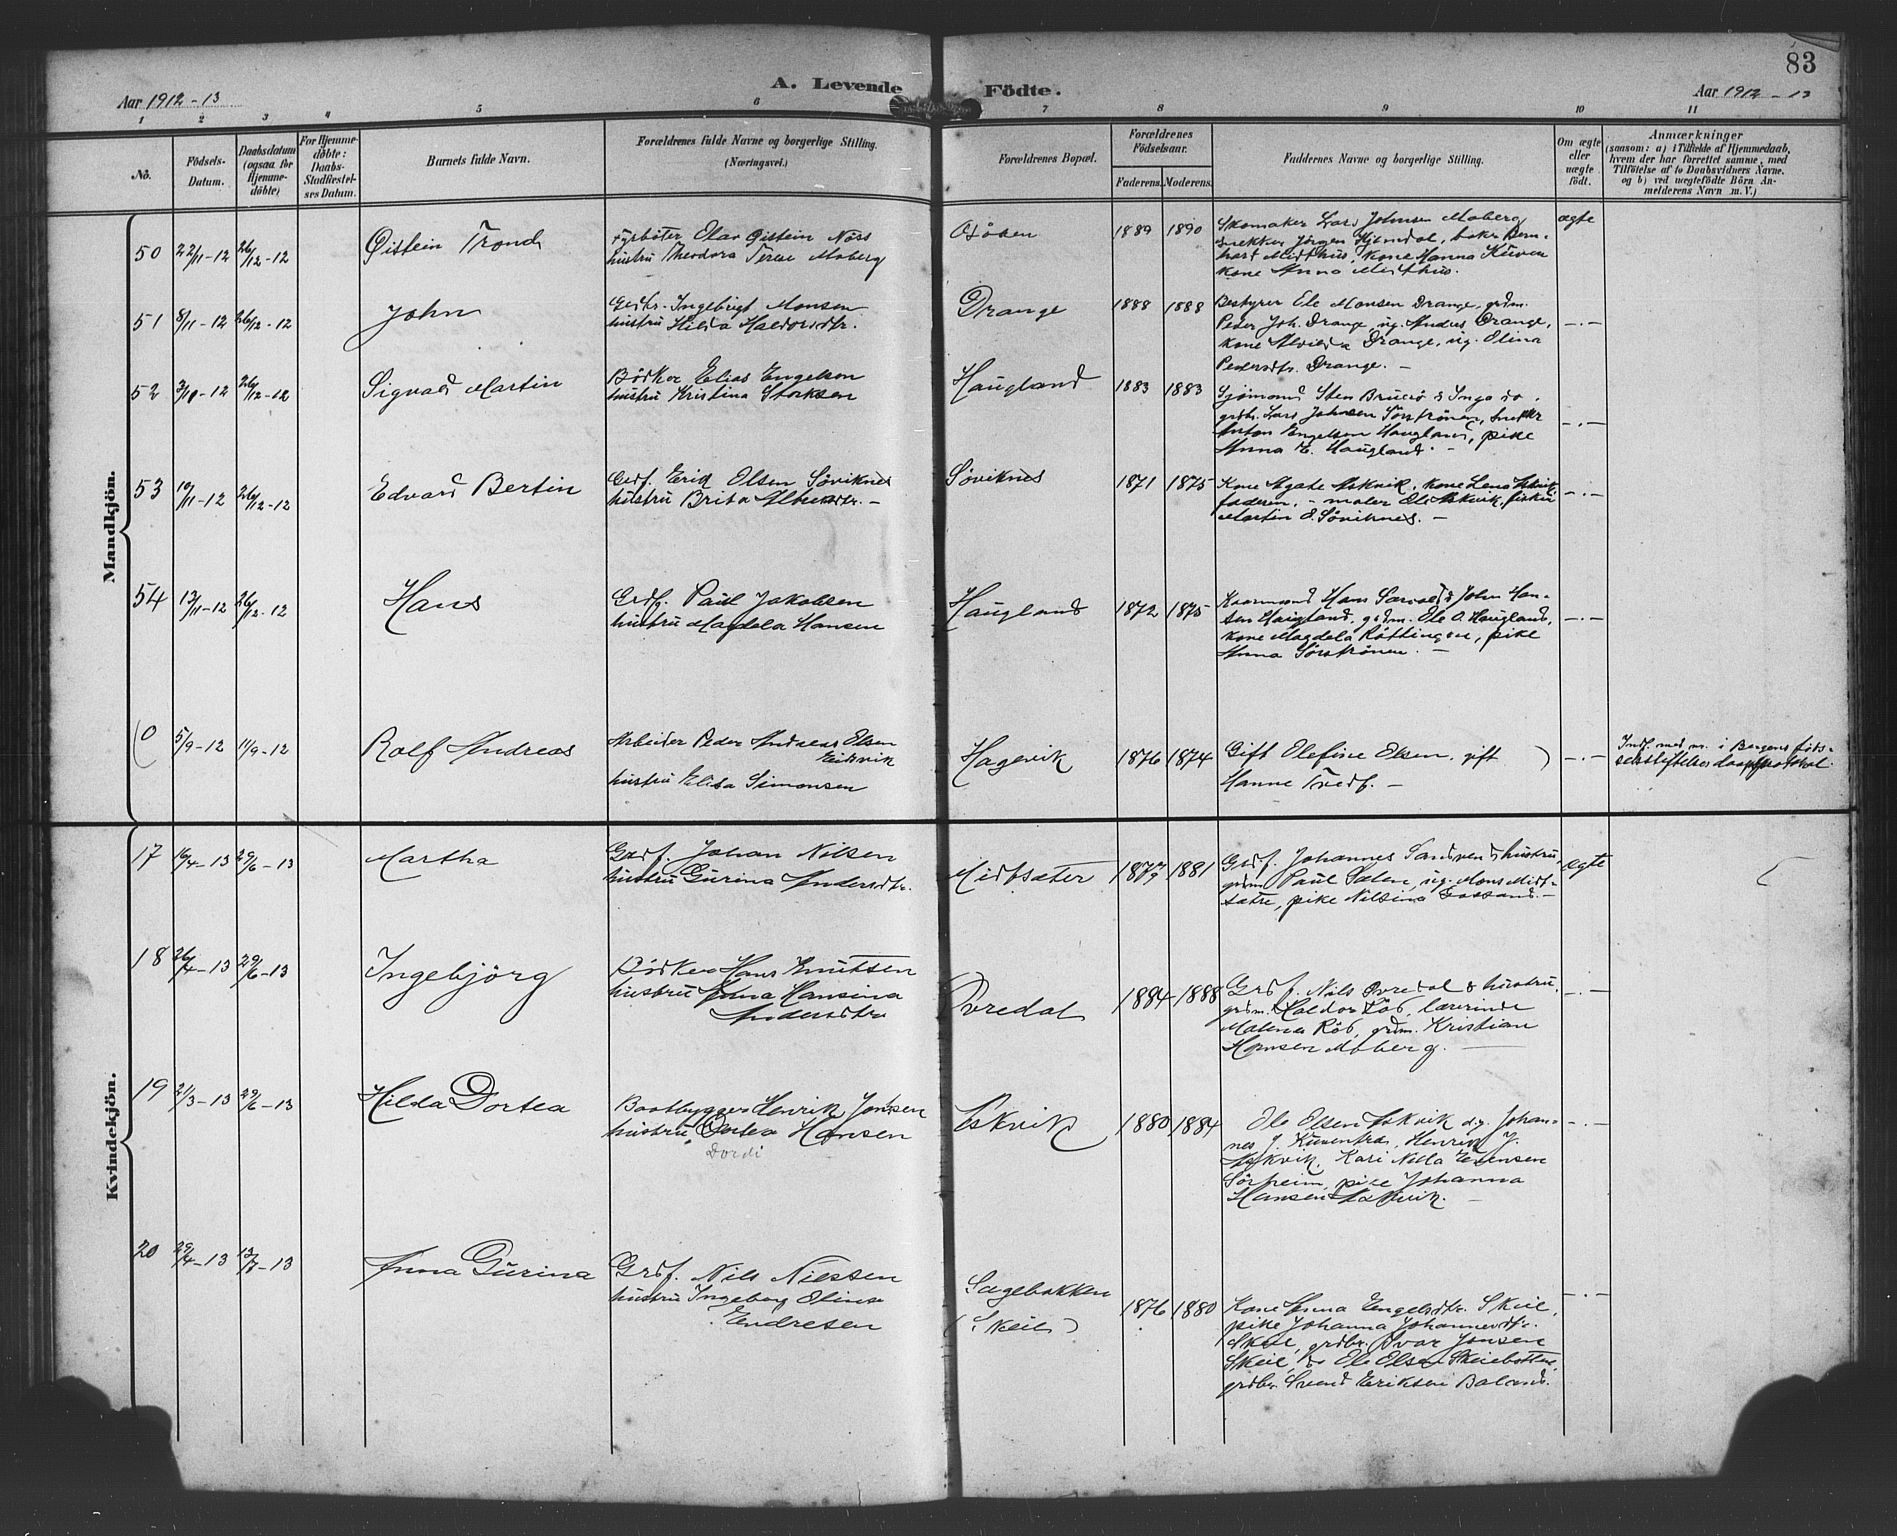 83
A. Levende Födte.
Aar 1912-13
Aar 1912-13
1 2 3 4 5 6 7 8 9 10 11
No.
Födsels-Datum.
Daabsdatum (ogsaa for Hjemme-döbte)
For Hjemme-döbte: Daabs-Stadfæstel-ses Datum.
Barnets fulde Navn.
Forældrenes fulde Navne og borgerlige Stilling. (Næringsvei.)
Forældrenes Bopæl.
Forældrenes Födselsaar.
Faderens. Moderens.
Faddernes Navne og borgerlige Stilling.
Om ægte eller uægte födt.
Anmærkninger
(saasom: a) i Tilfælde af Hjemmedaab,
hvem der har forrettet samme, med
Tilföielse af to Daabsvidners Navne.
og b) ved uægtefödte Börn An-
melderens Navn m. V.)
Mandkjön.
50 22/11-12 26/12-12 Øistein Trond
Fyrbøter Olav Øistein Næss
hustru Theodora Terese Moberg
Osøren 1889 1890
Skomaker Lars Johnsen Moberg
snekker Jörgen Hjemdal, baker Bern-
hard Midthus, kone Hanna Kuven
kone Anna Midthus.
ægte
51 8/11-12 26/12-12 John
Grdbr. Ingebrigt Monsen
hustru Hilda Haldorsdtr.
Drange 1888 1888
Bestyrer Ole Monsen Drange, grdm.
Peder Joh. Drange, ug. Anders Drange,
kone Alvilda Drange, ug. Olina
Pedersdtr. Drange. -
-.-
52 3/11-12 26/12-12 Sigvald Martin
Bödker Elias Engelsen
hustru Kristina Storksen
Haugland 1883 1883
Sjömand Sten Bruarö & Inga do.
grdbr. Lars Johnsen Sörströnen, snekker
Anton Engelsen Haugland, pike
Anna E. Haugland. -
-.-
53 10/11-12 26/12-12 Edvard Bertin
Grdf. Erik Olsen Söviknes
hustru Brita Albertsdtr. -
Söviknes 1871 1875
Kone Agate Askvik, kone Lena Askvik
faderen, - maler Ole Askvik, fisker
Martin O. Söviknes. -
-.-
54 13/11-12 26/12-12 Hans
Grdf. Paul Jakobsen
hustru Magdela Hansen
Haugland 1872 1875
Kaarmand Hans Sarvold & John Han-
sen Haugland, grdm. Ole O. Haugland,
kone Magdela Röttingen, pike
Anna Sörströnen. -
-.-
(0 5/9-12 11/9-12 Rolf Andreas
Arbeider Peder Andreas Olsen
Eidsvik
hustru Elisa Simonsen
Hagevik 1876 1874
Gift Olefine Olsen, gift )
Hanne Tvedt. -
-.-
Indf. med nr. i Bergens föds-
selsstiftelses daapsprotokol.
Kvindekjön.
17 16/4-13 29/6-13 Martha
Grdf. Johan Nilsen
hustru Gurina Andersdtr.
Midtsæter 1879 1881
Grdf. Johannes Sandven & hustru,
grdm. Paul Dalen, ug. Mons Midt-
sætre, pike Nilsina Gaassand. -
ægte
18 26/4-13 29/6-13 Ingebjörg
Bödker Hans Knutsen
hustru Anna Hansina
Andersdtr
Øvredal 1884 1888
Grdf. Nils Øvredal & hustru,
grdm. Haldor Röd, lærerinde
Malena Röd, grdm. Kristian
Hansen Moberg.
-.-
19 21/3-13 29/6-13 Hilda Dortea
Baatbygger Henrik Jonsen
hustru Dortea Hansen
Dordi
Askvik 1880 1884
Ole Olsen Askvik d.y. Johan-
nes J. Kuventræ, Henrik J.
Askvik, Kari Nilla Evensen
Sörheim, pike Johanna
Hansen Askvik. -
-.-
20 29/4-13 13/7-13 Anna Gurina
Grdf. Nils Nilssen
hustru Ingeborg Olina
Endresen
Sagebakken
(Skeie) 1876 1880
Kone Anna Engelsdtr. Skeie,
pike Johanna Johannesdtr.
Skeie, grdbr. Ivar Jonsen
Skeie, do Ole Olsen Skeiebotten,
grdbr. Svend Eriksen Baland.
-.-